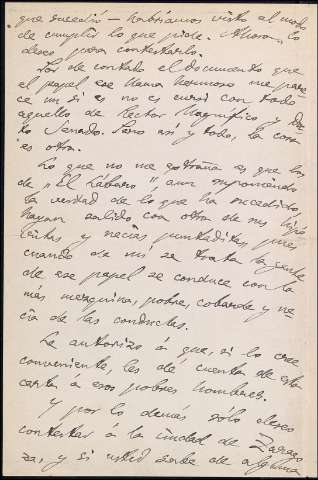 que sucedió — habríamos visto el modo
de cumplir lo que pide. Ahora lo
deseo para contestarlo.
Por de contado el documento que
el papel ese llama hermoso me pare-
ce un si es no es cursi con todo
aquello de Rector Magnífico y Doc-
to Senado. Pero así y todo, la cosa
es otra.
Lo que no me extraña es que los
de "El Lábaro", aun suponiendo
la verdad de lo que ha sucedido,
hayan salido con otra de sus
y necias puntaditas, pues
cuando de mí se trata la gente
de ese papel se conduce con la
más mezquina, pobre, cobarde y ne-
cia de las conductas.
Le autorizo á que, si lo cree
conveniente, les dé cuenta de esta
carta á esos pobres hombres.
Y por lo demás sólo deseo
contestar á la ciudad de Zarago-
za, y si usted sabe de alguna